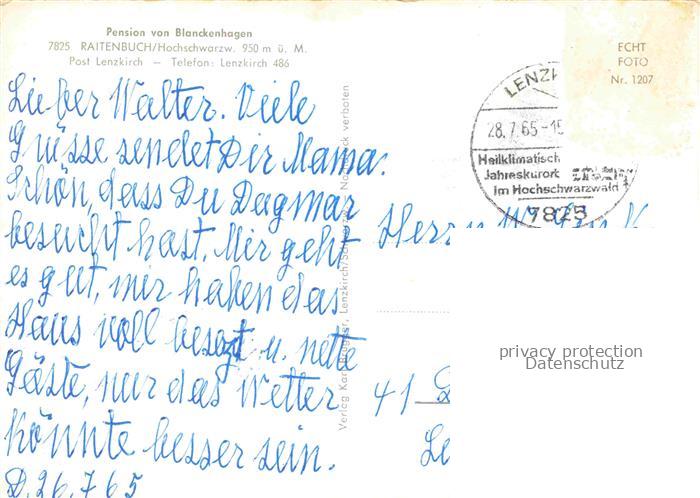 Pension von Blanckenhagen
7825 RAITENBUCH/Hochschwarzw. 950 m ü. M.
Post Lenzkirch — Telefon: Lenzkirch 486
Lieber Walter. Viele
Grüsse sendet Dir Mama.
Schön, dass Du Dagmar
besucht hast. Mir geht
es gut, mir haben das
Haus voll besezt u. nette
Gäste, nur das Wetter
könnte besser sein.
D. 26.7 65
Nachdruck verboten
Verlag Karl
Lenzkirch/Schwarzw.
ECHT
FOTO
Nr. 1207
LENZK
28.7.65-15
Heilklimatisch
Jahreskurort
im Hochschwarzwald
7825
Herrn
41
privacy protection
Datenschutz